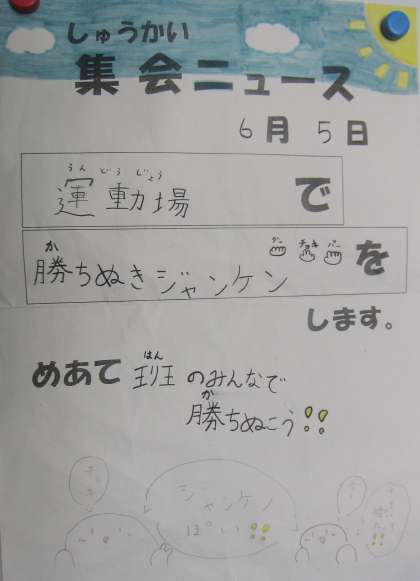 しゅうかい
集会ニュース
6月 5日
うんどうじょう
運動場 で
か グー チョキ パー
勝ちぬきジャンケン を
します。
はん
めあて 班のみんなで
か
勝ちぬこう!!
チョキ
ジャンケン
ぽい!!